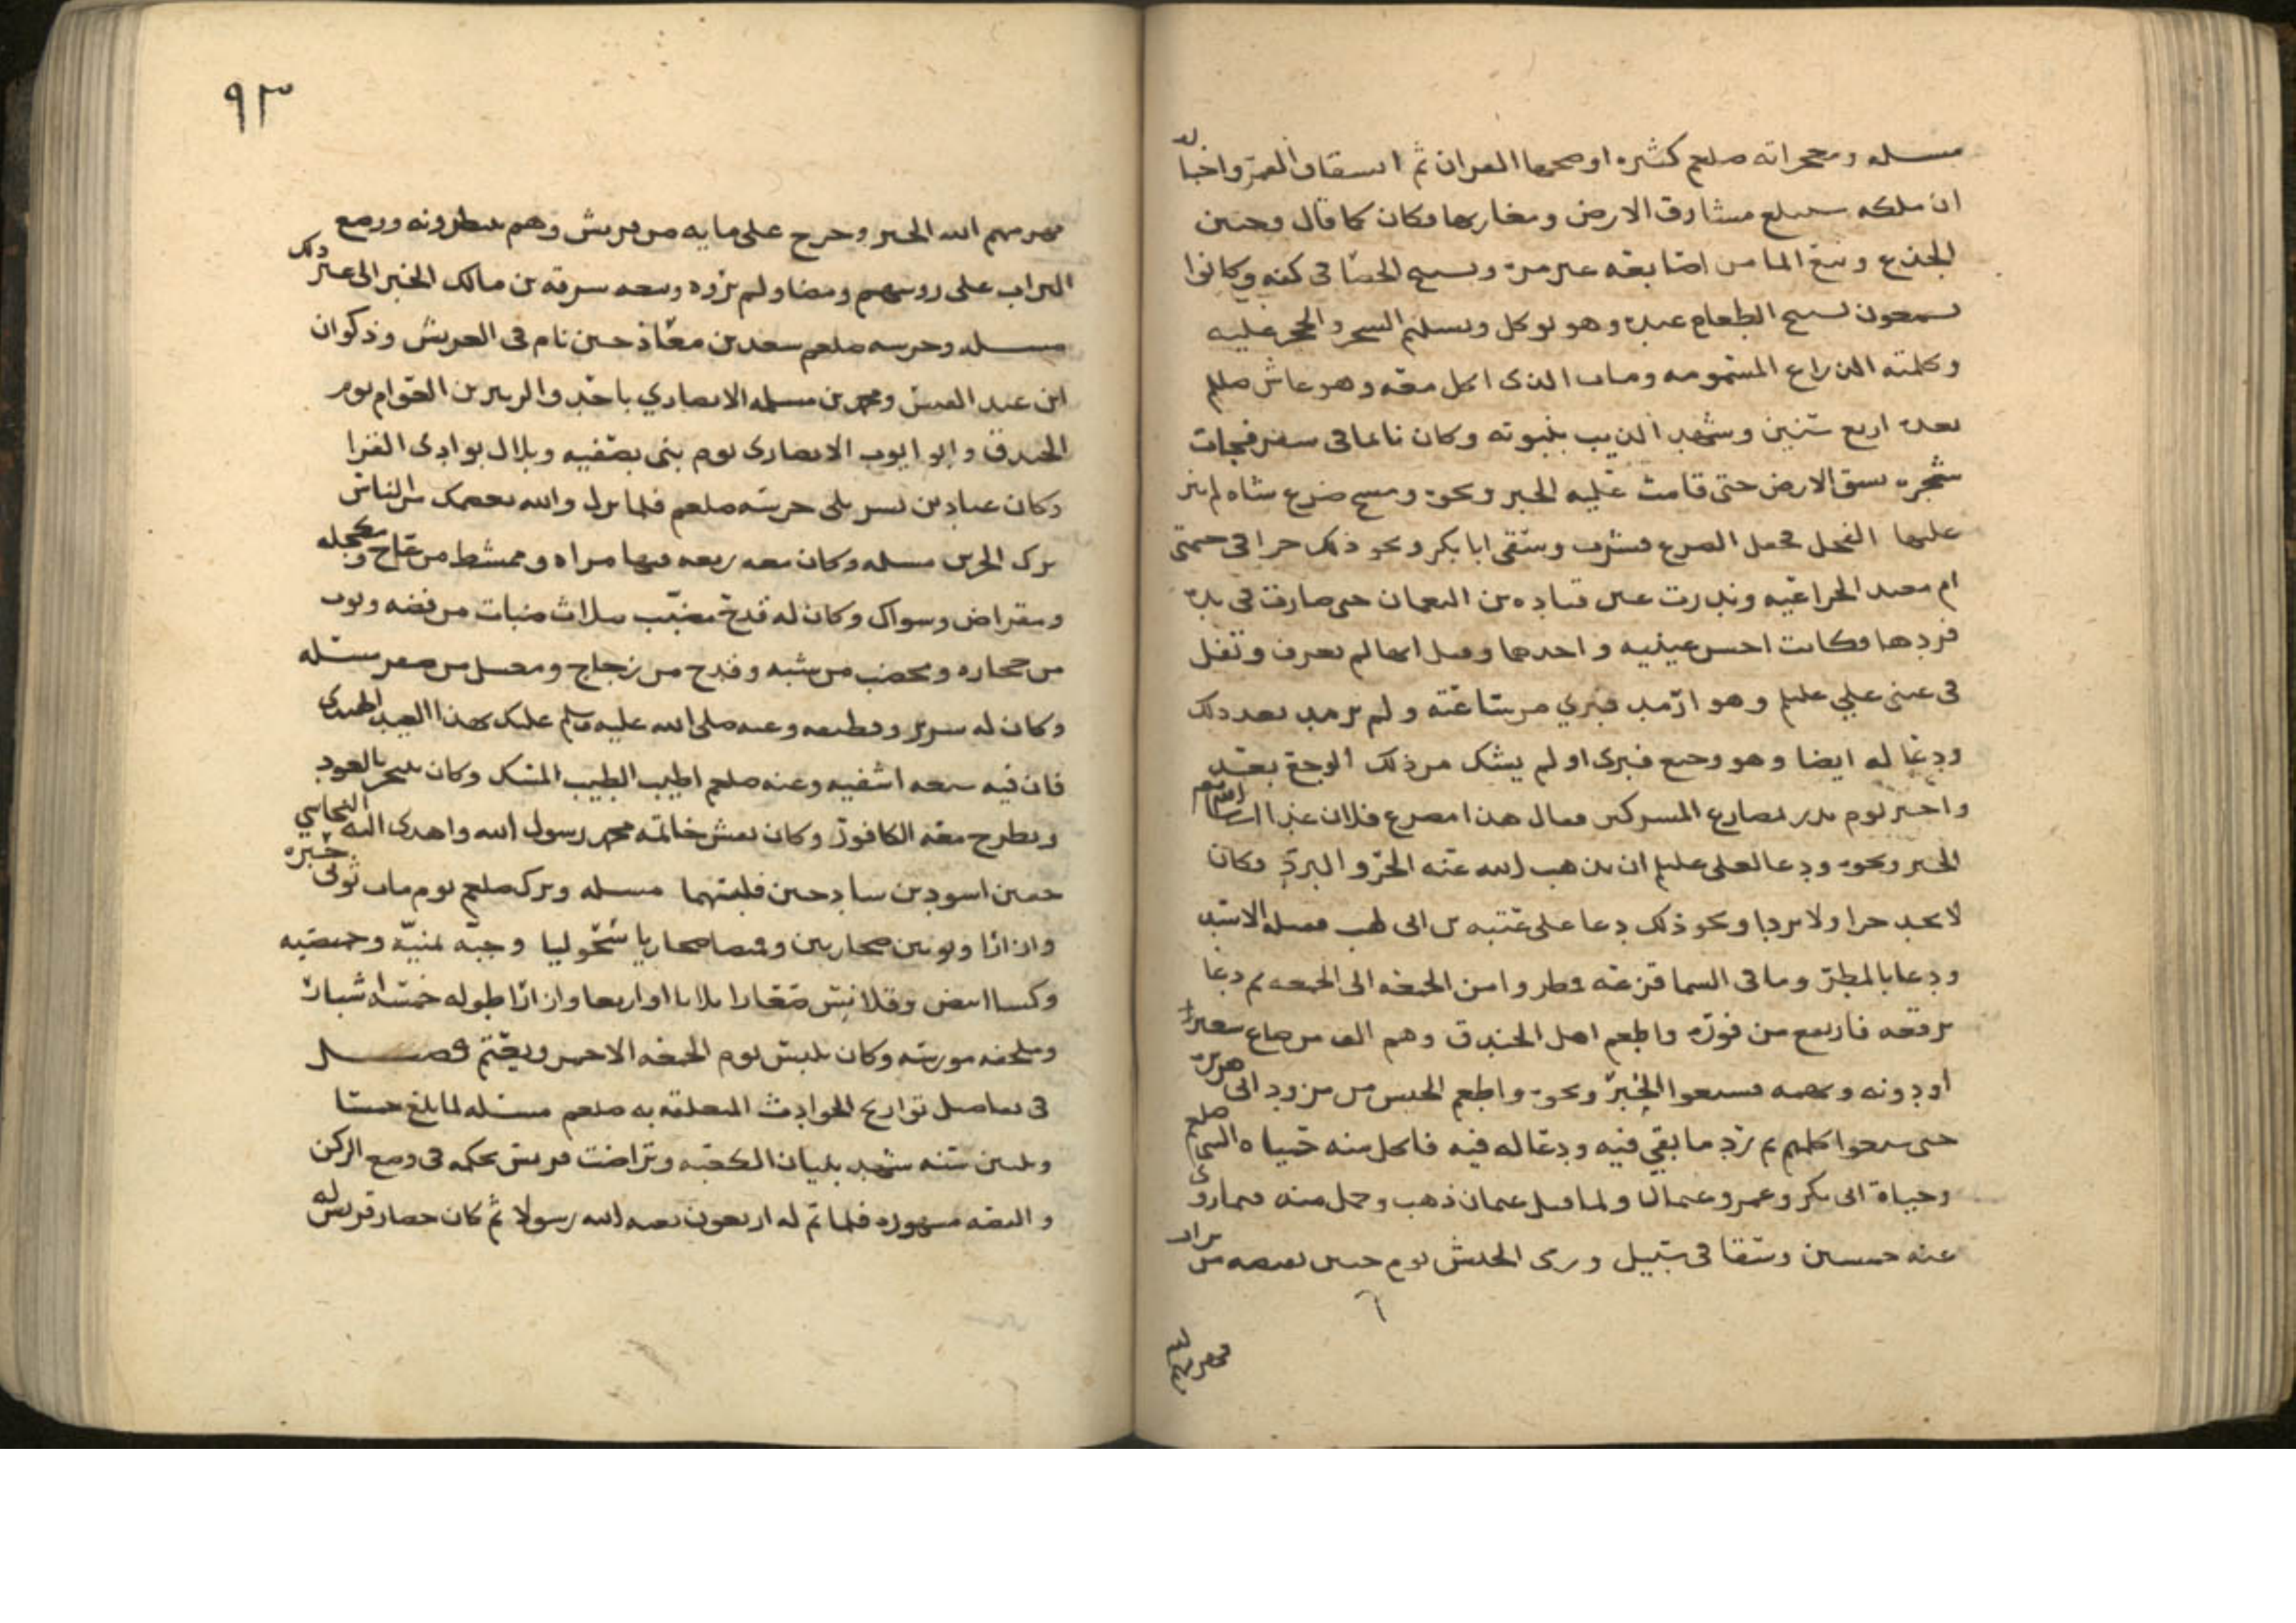 مسله ومعجزاته صلعم كثيره اوضحها القران ثم انشقاق القمر واخباره
ان ملكه سيبلغ مشارق الارض ومغاربها فكان كما قال وحنين
الجذع ونبع الما من اصابعه غير مرة وتسبيح الحصا فى كفه وكانوا
يسمعون تسبيح الطعام عنده وهو يوكل وتسليم الشجر والحجر عليه
وكلمته الذراع المسمومه ومات الذى اكل معه وهو عاش صللم
بعده اربع سنين وشهد الذيب بنبوته وكان نائما فى سفر فجات
شجره تشق الارض حتى قامت عليه الخبر ونحوه ومسح ضرع شاه لم ينز
عليها الفحل فحفل الضرع فشرب وسقى ابا بكر ونحو ذلك جرا فى خيمتى
ام معبد الخزاعيه وندرت عين قتاده بن النعمان حتى صارت فى يده
فردها فكانت احسن عينيه واحدهما وقيل انها لم تعرف وتفل
فى عينى علي عليلم وهو ارمد فبري من ساعته ولم يرمد بعد ذلك
ودعا له ايضا وهو وجع فبرى اولم يشك من ذلك الوجع بعد
واخبر يوم بدر بمصارع المشركين فقال هذا مصرع فلان غدا ان شا الله
الخبر ونحوه ودعا لعلى عليلم ان يذهب الله عنه الحر والبرد فكان
لا يجد حرا ولا بردا ونحو ذلك دعا على عتبه بن ابى لهب فقتله الاسد
ودعا بالمطر وما فى السما قزعه فمطروا من الجمعه الى الجمعه ثم دعا
برفعه فارتفع من فوره واطعم اهل الخندق وهم الف من صاع شعير
او دونه وبهمه فشبعوا الخبر ونحوه واطعم الجيش من مزود ابى هريره
حتى شبعوا كلهم ثم رد ما بقي فيه ودعا له فيه فاكل منه حياه النبى صلعم
وحياة ابى بكر وعمر وعثمان ولما قتل عثمان ذهب وحمل منه فيما روى
عنه خمسين وسقا فى سبيل ورمى الجيش يوم حنين بقبضه من تراب
فهزمهم الله
٩٣
فهزمهم الله الخبر وخرج على مايه من قريش وهم ينتظرونه ووضع
التراب على روسهم ومضا ولم يروه وتبعه سرقه بن مالك الخبر الى غير ذلك
مسله وحرسه صلعم سعد بن معاذ حين نام فى العريش وذكوان
ابن عبد القيس ومحمد بن مسلمه الانصاري باحد والزبير بن العوام يوم
الخندق وابو ايوب الانصارى يوم بنى بصفيه وبلال بوادى القرا
وكان عباد بن بشر يلى حرسه صلعم فلما نزل والله يعصمك من الناس
ترك الحرس مسله وكان معه ربعه فيها مراه وممشط من عاج ومكحله
ومقراض وسواك وكان له قدح مضبب بثلاث ضبات من فضه وتور
من حجاره ومخضب من شبه وقدح من زجاج ومغسل من صفر مسله
وكان له سرير وقطيفه وعنه صلى الله عليه وسلم عليك بهذا العود الهندى
فان فيه سبعه اشفيه وعنه صلعم اطيب الطيب المسك وكان يتبخر بالعود
ويطرح معه الكافور وكان نقش خاتمه محمد رسول الله واهدى اليه النجاشي
خفين اسودين ساذجين فلبسهما مسله وترك صلعم يوم مات ثوبى حبره
وازارا وثوبين صحاريين وقميصا صحاريا سحوليا وجبه يمنيه وخميصه
وكسا ابيض وقلانيس صغارا ثلاثا او اربعا وازارا طوله خمسه اشبار
وملحفه مورسه وكان يلبس يوم الجمعه الاحمر ويعتم فصــل
فى تفاصيل تواريخ الحوادث المتعلقه به صلعم مسله لما بلغ خمسا
وثلثين سنه شهد بنيان الكعبه وتراضت قريش بحكمه فى وضع الركن
والقصه مشهوره فلما تم له اربعون بعثه الله رسولا ثم كان حصار قريش له